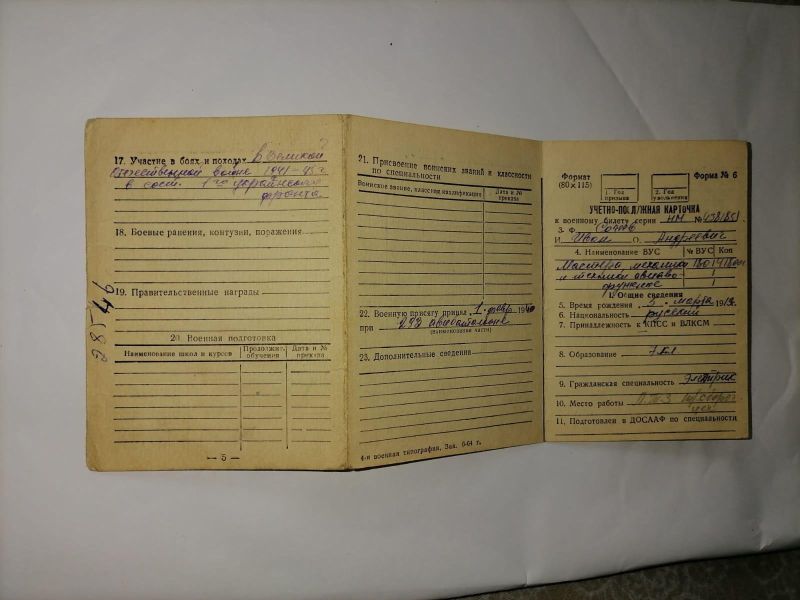 17. Участие в боях и походах в Великой
Отечественной войне 1941-45 г.
в сост. 1го украинского
фронта
18. Боевые ранения, контузии, поражения
19. Правительственные награды
20. Военная подготовка
Наименование школ и курсов
Продолжит. обучения
Дата и № приказа
— 5 —
28546
21. Присвоение воинских званий и классности
по специальности
Воинское звание, классная квалификация
Дата и № приказа
22. Военную присягу принял 1. февр. 1940
при 292 авиабатальоне
(наименование части)
23. Дополнительные сведения
4-я военная типография, Зак. 6-64 г.
Формат
(80×115)
1. Год
призыва
2. Год
увольнения
Форма № 6
УЧЕТНО-ПОСЛУЖНАЯ КАРТОЧКА
к военному билету серии НМ №
3. Ф.
И. Иван О. Андреевич
4. Наименование ВУС
№ ВУС
Код
Мастера, механики
и техники авиаво-
1. Общие сведения
5. Время рождения 5. марта 191
6. Национальность русский
7. Принадлежность к КПСС и ВЛКСМ
8. Образование 7 кл
9. Гражданская специальность Электрик
10. Место работы
11. Подготовлен в ДОСААФ по специальности